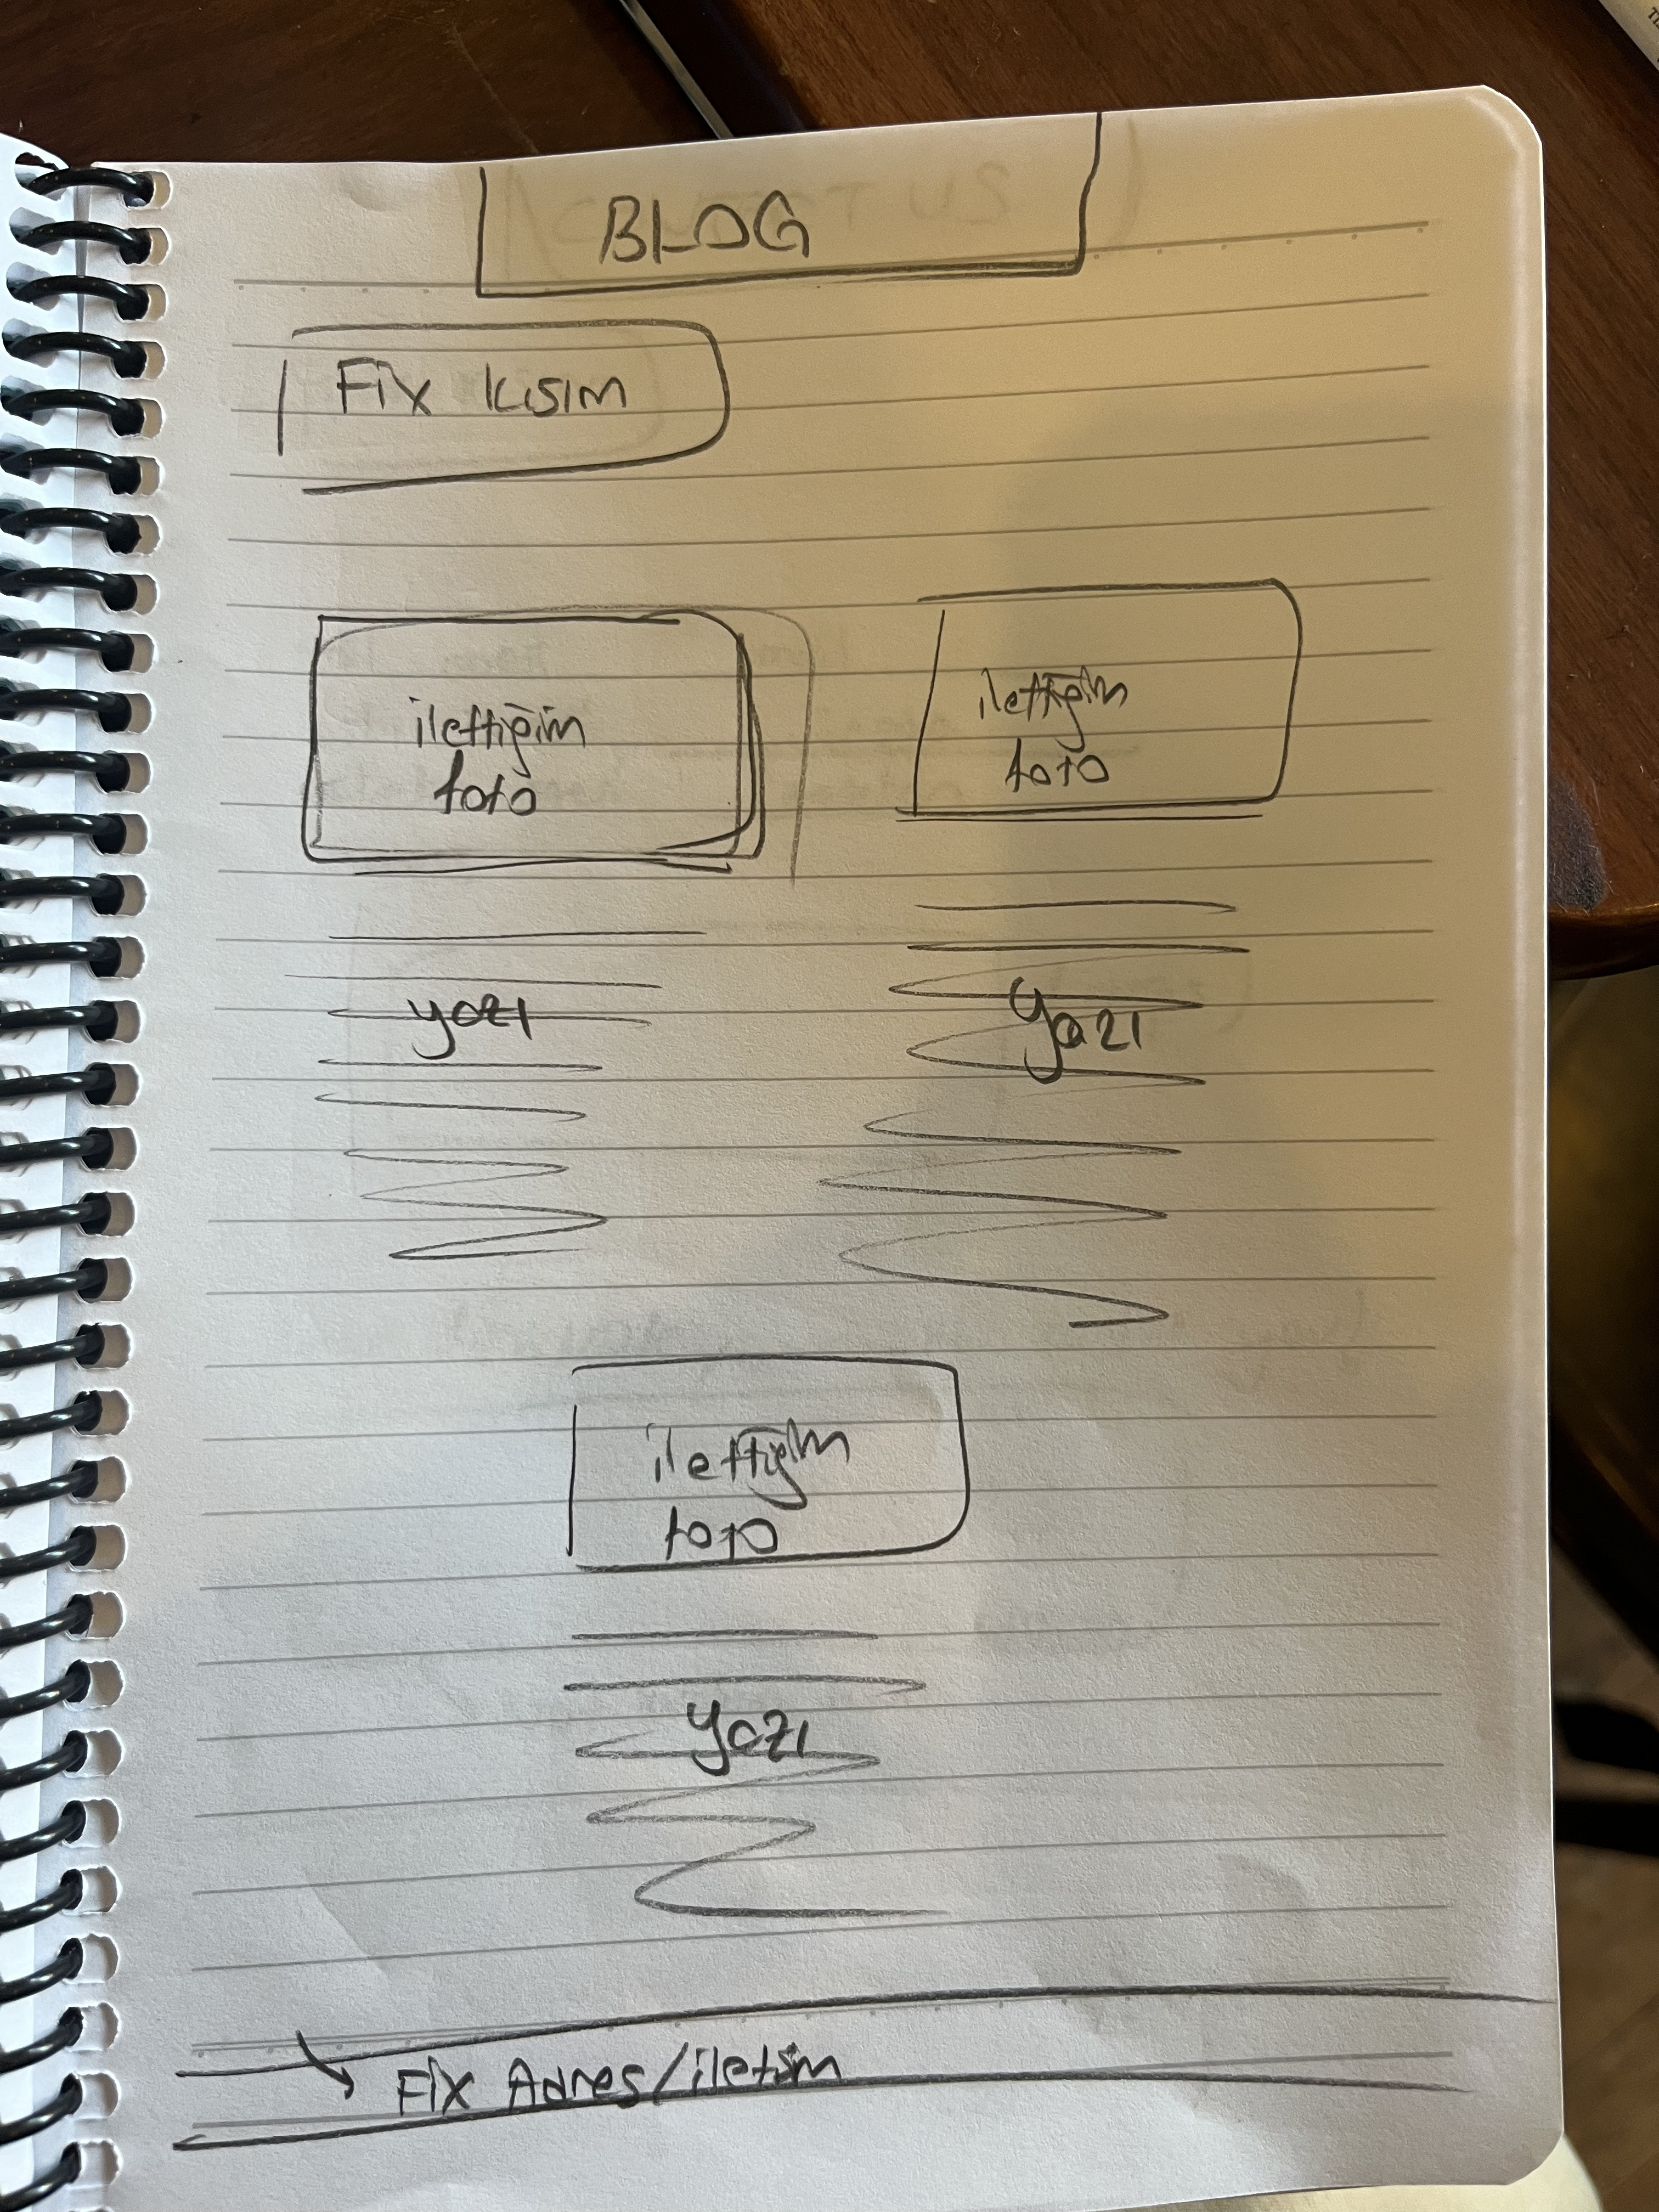 BLOG
Fix kısım
ilettiğim
foto
ilettiğim
foto
yazı
yazı
ilettiğim
foto
yazı
Fix Adres/iletişim